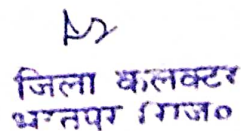 जिला कलक्टर
भरतपुर राज०